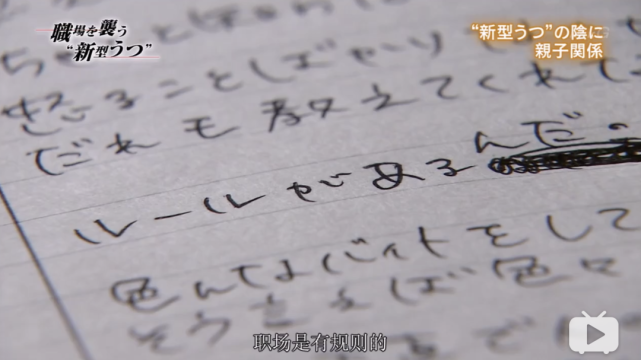 職場を襲う
“新型うつ”
“新型うつ”の陰に
親子関係
ることばかり
だれも教えてくれ
ルールがあるんだ。
色んなバイトをして
そう言えば色々
职场是有规则的